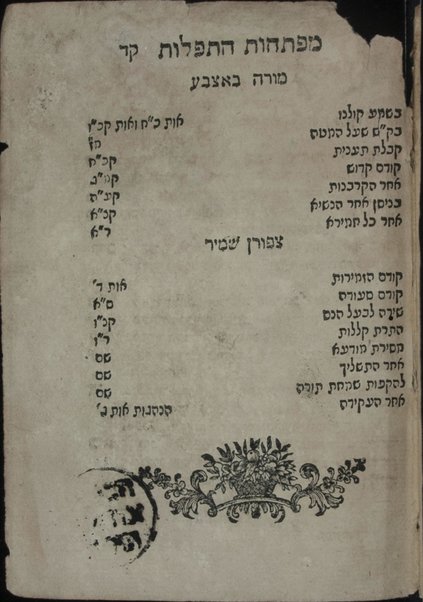 מפתחות התפלות קד
מורה באצבע
בשמע קולנו אות כ"ח ואות קכ"ו
בק"ש שעל המטה
קבלת תענית
קודם קדוש קכ"ח
אחר הקרבנות
בניסן אחר הנשיא קע"ח
אחר כל חמירא קנ"א
ר"א
צפורן שמיר
קודם הזמירות אות ד'
קודם סעודה ס"א
שירה לבעל הנס קנ"ו
התרת קללות ר"ו
מסירת מודעא שם
אחר התשליך שם
להקפות שמחת תורה שם
אחר העקירה הנהגות אות ג'